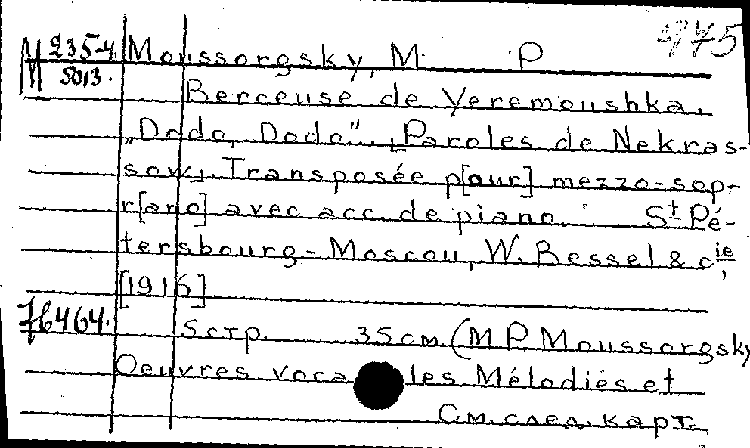 M 235-4 Moussorgsky, M. P. 475
5013
Berceuse de Yeremoushka.
„Dodo, Dodo". [Paroles de Nekras-
sow]. Transposée p[our] mezzo-sop-
r[ano] avec acc. de piano. St Pé-
tersbourg-Moscou, W. Bessel & Cie,
[1916]
76464. 5 стр. 35 см. (M. P. Moussorgsky
Oeuvres vocales Mélodies et
См. след. карт.